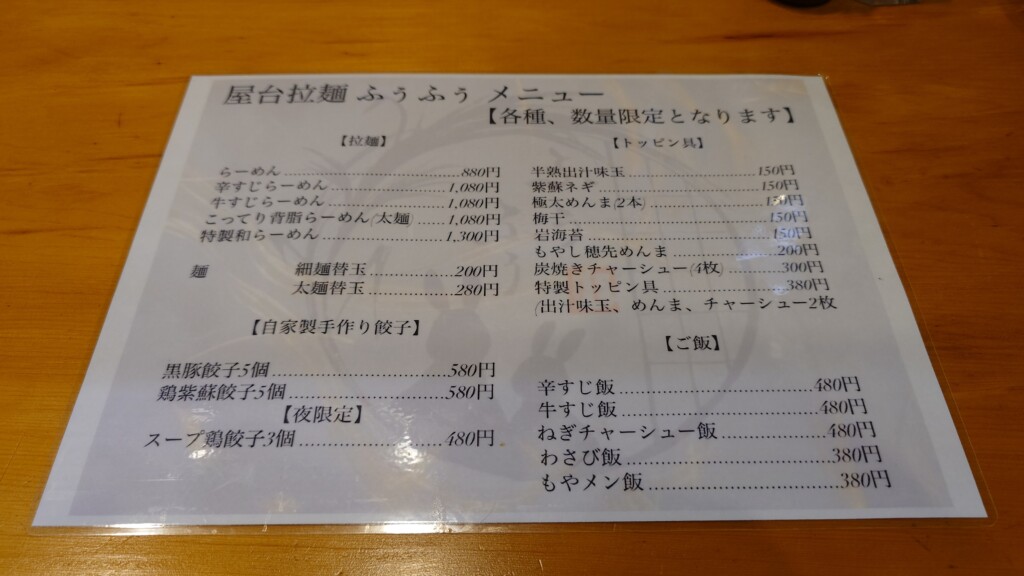 屋台拉麺 ふぅふぅ メニュー
【各種、数量限定となります】
【拉麺】
らーめん 880円
辛すじらーめん 1,080円
牛すじらーめん 1,080円
こってり背脂らーめん(太麺) 1,080円
特製和らーめん 1,300円
麺 細麺替玉 200円
太麺替玉 280円
【自家製手作り餃子】
黒豚餃子5個 580円
鶏紫蘇餃子5個 580円
【夜限定】
スープ鶏餃子3個 480円
【トッピン具】
半熟出汁味玉 150円
紫蘇ネギ 150円
極太めんま(2本) 150円
梅干 150円
岩海苔 150円
もやし穂先めんま 200円
炭焼きチャーシュー(4枚) 300円
特製トッピン具 380円
(出汁味玉、めんま、チャーシュー2枚
【ご飯】
辛すじ飯 480円
牛すじ飯 480円
ねぎチャーシュー飯 480円
わさび飯 380円
もやメン飯 380円